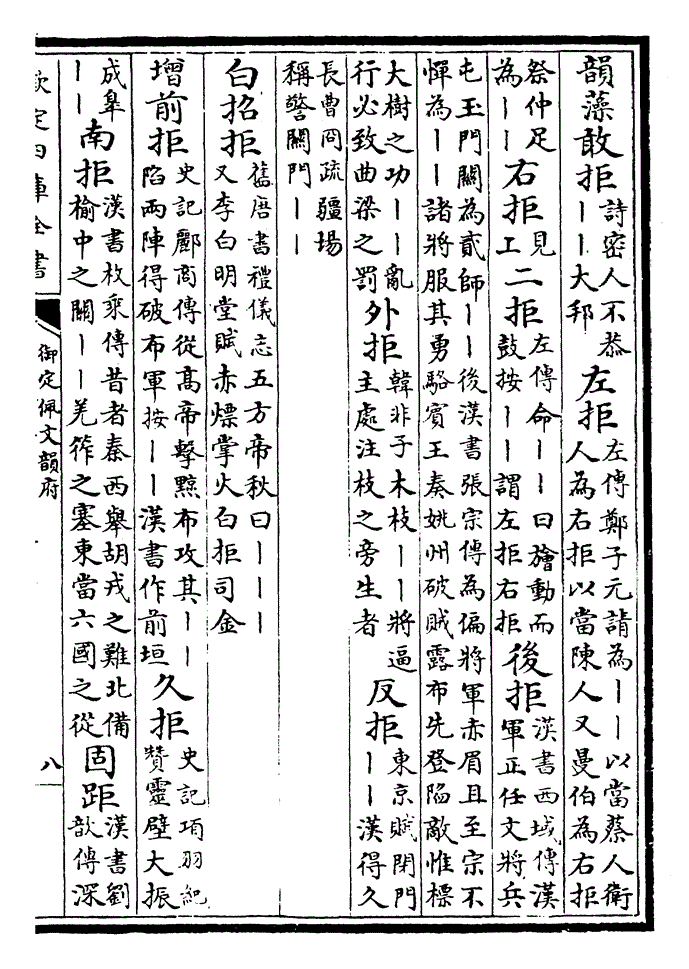 韻藻敢拒詩密人不恭丨丨大邦左拒左傳鄭子元請為丨丨以當蔡人衛人為右拒以當陳人又曼伯為右拒
祭仲足為丨丨右拒見上二拒左傳命丨丨曰旝動而鼓按丨丨謂左拒右拒後拒漢書西域傳漢軍正任文將兵
屯玉門關為貳師丨丨後漢書張宗傳為偏將軍赤眉且至宗不憚為丨丨諸將服其勇駱賓王奏姚州破賊露布先登陷敵惟標
大樹之功丨丨亂行必致曲梁之罰外拒韓非子木枝丨丨將逼主處注枝之旁生者反拒東京賦閉門丨丨漢得久
長曹冏疏疆場稱警關門丨丨
白招拒舊唐書禮儀志五方帝秋曰丨丨丨又李白明堂賦赤熛掌火白拒司金
增前拒史記酈商傳從高帝擊黥布攻其丨丨陷兩陣得破布軍按丨丨漢書作前垣久拒史記項羽紀贊靈壁大振
成皋丨丨南拒漢書枚乘傳昔者秦西舉胡戎之難北備榆中之關丨丨羌筰之塞東當六國之從固距漢書劉歆傳深
欽定四庫全書 御定佩文韻府 八